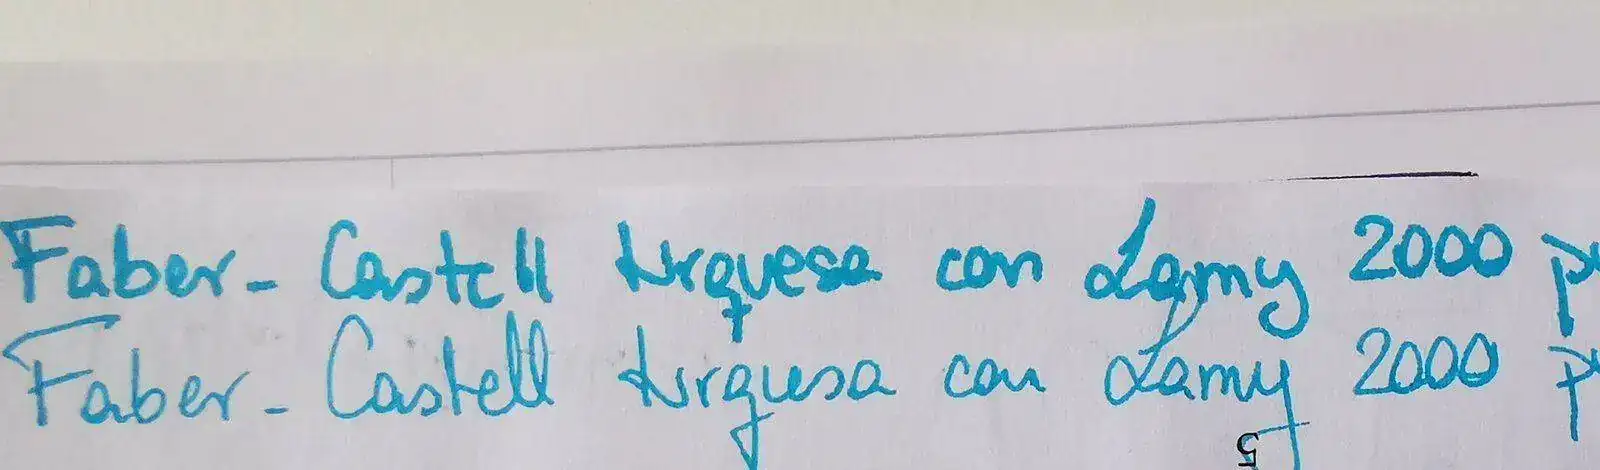 Faber-Castell turquesa con Lamy 2000
Faber-Castell turquesa con Lamy 2000
5